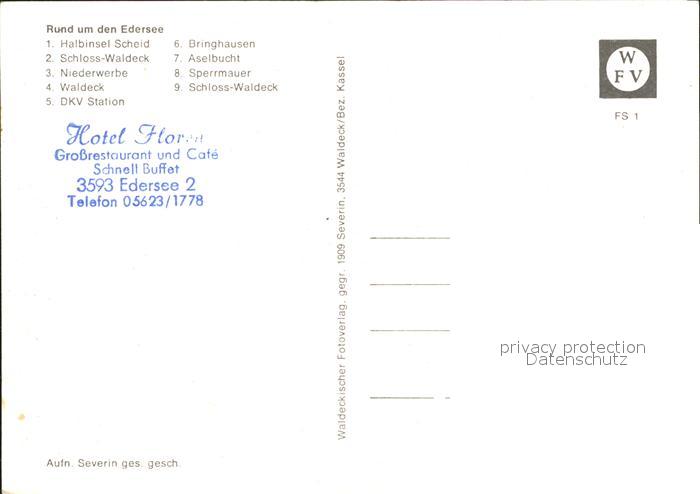 Rund um den Edersee
1. Halbinsel Scheid
2. Schloss-Waldeck
3. Niederwerbe
4. Waldeck
5. DKV Station
6. Bringhausen
7. Aselbucht
8. Sperrmauer
9. Schloss-Waldeck
Hotel
Großrestaurant und Café
Schnell Buffet
3593 Edersee 2
Telefon 05623/1778
Waldeckischer Fotoverlag, gegr. 1909 Severin, 3544 Waldeck/Bez. Kassel
W
FV
FS 1
privacy protection
Datenschutz
Aufn. Severin ges. gesch.